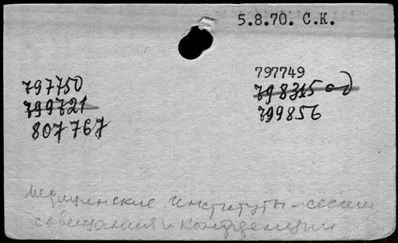 5.8.70. С.К.
797750
799721
807767
797749
798315 од
799856
Медицинские институты - сессии
совещания и конференции